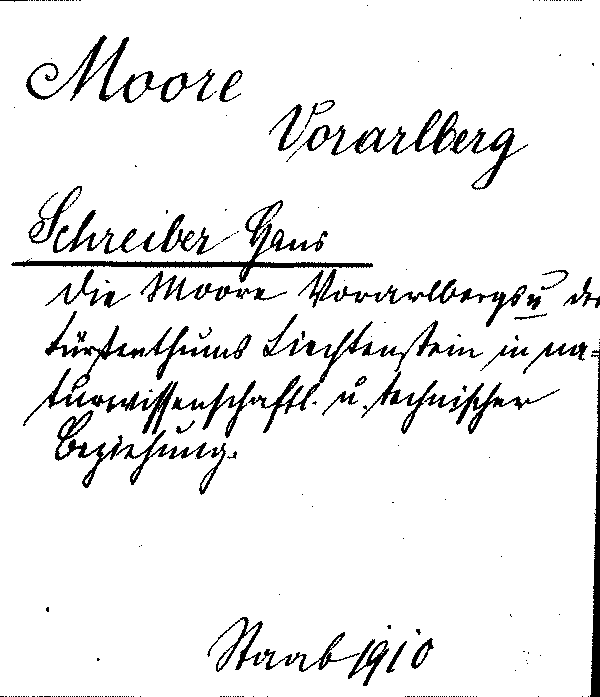 Moore
Vorarlberg
Schreiber Hans
Die Moore Vorarlbergs u des
Fürstenthums Liechtenstein in na=
turwissenschaftl. u. technischer
Beziehung.
Staab 1910